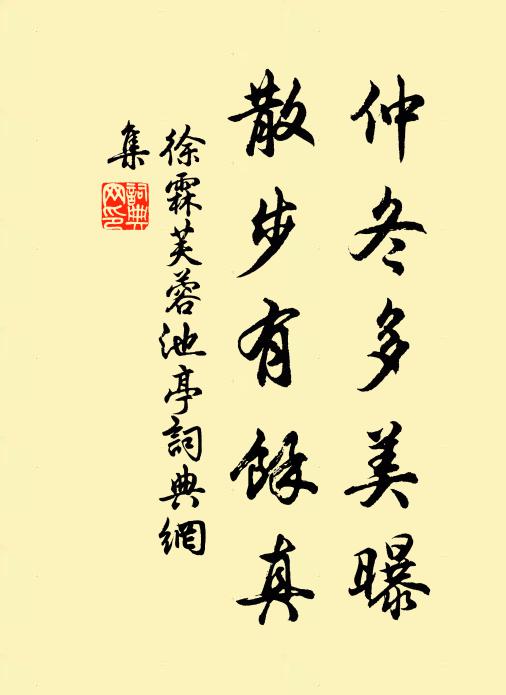 仲冬多美曝
散步有餘真
徐霖芙蓉池亭詞典網
集
詞典
网印